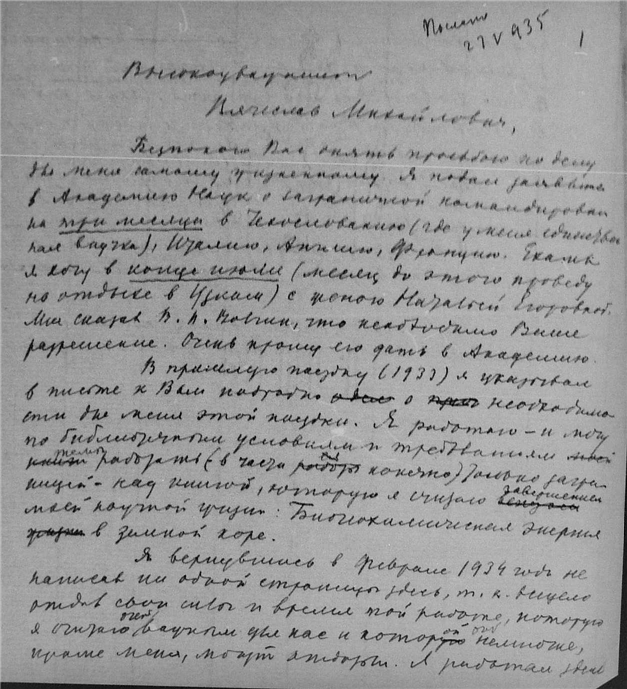 Послано
27 V 935
1
Высокоуважаемый
Вячеслав Михайлович,
Беспокою Вас опять просьбою по делу
для меня самому жизненному. Я подал заявление
в Академию Наук о заграничной командировке
на три месяца в Чехословакию (где у меня единств.
внучка), Италию, Англию, Францию. Ехать
я хочу в конце июля (месяц до этого проведу
на отдыхе в Узком) с женою Натальей Егоровной.
Мне сказал В. П. Волгин, что необходимо Ваше
разрешение. Очень прошу его дать в Академию.
В прошлую поездку (1933) я указывал
в письме к Вам подробно о необходимо-
сти для меня этой поездки. Я работаю - и могу
по библиотечным условиям и требованиям моей
темы работать (в части конечно) только загра-
ницей - над книгой, которую я считаю завершением
моей научной жизни: Биогеохимическая энергия
жизни в земной коре.
Я вернувшись в феврале 1934 года не
написал ни одной страницы здесь, т. к. всецело
отдав свои силы и время той работе, которую
я считаю очень важным для нас и которой немногие,
кроме меня, могут отдать. Я работал здесь